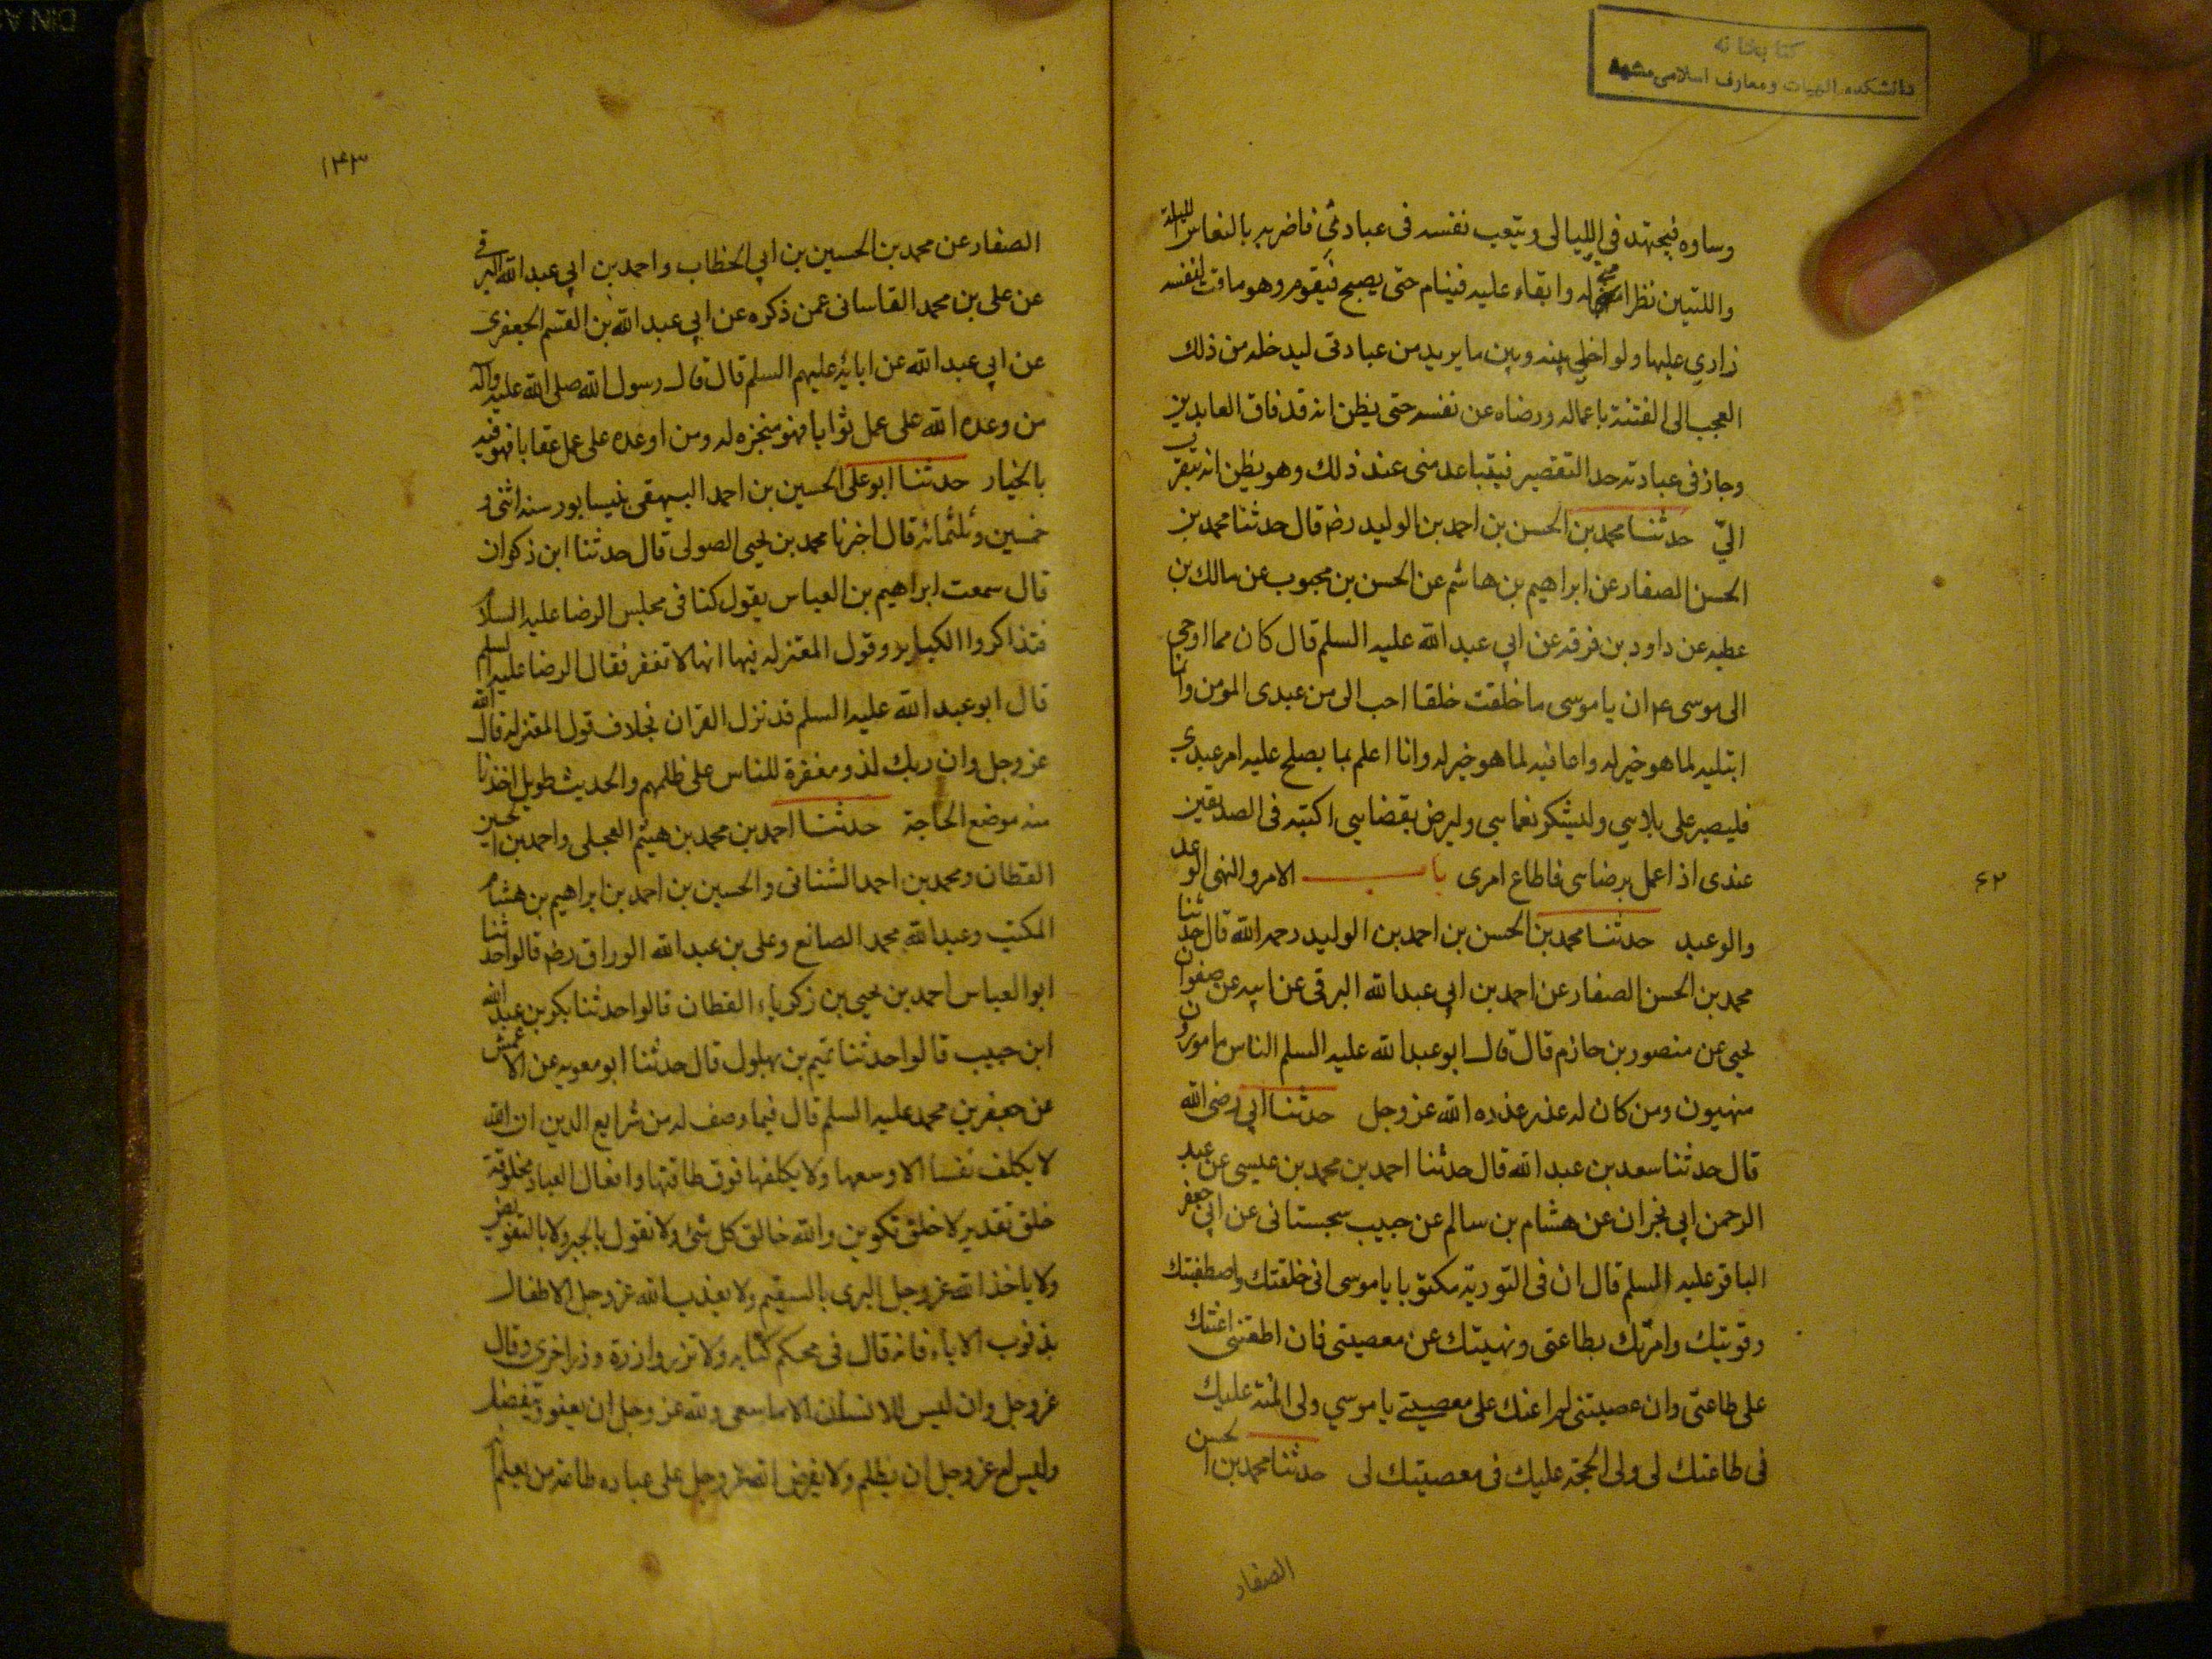 كتابخانه
دانشكده الهيات ومعارف اسلامى مشهد
وساوه فيجتهد فى الليالى ويتعب نفسه فى عبادتى فاضربه بالنعاس الليلة
والليتين نظرا منى له وابقاء عليه فينام حتى يصبح فيقوم وهو ماقت لنفسه
زارى عليها ولو اخلى بينه وبين ما يريد من عبادتى ليدخله من ذلك
العجب الى الفتنة باعماله ورضاه عن نفسه حتى يظن انه قد فاق العابدين
وجاز فى عبادته حد التقصير فيتباعد منى عند ذلك وهو يظن انه يتقرب
الىّ حدثنا محمد بن الحسن بن احمد بن الوليد رضه قال حدثنا محمد بن
الحسن الصفار عن ابراهيم بن هاشم عن الحسن بن محبوب عن مالك بن
عطيه عن داود بن فرقد عن ابى عبد الله عليه السلم قال كان مما اوحى
الى موسى ع ان يا موسى ما خلقت خلقا احب الى من عبدى المومن وانا
ابتليه لما هو خير له واعافيه لما هو خير له وانا اعلم بما يصلح عليه امر عبدى
فليصبر على بلاىى وليشكر نعماىى وليرض بقضاىى اكتبه فى الصديقين
عندى اذا عمل برضاىى فاطاع امرى باب الامر والنهى الوعد
والوعيد حدثنا محمد بن الحسن بن احمد بن الوليد رحمه الله قال حدثنا
محمد بن الحسن الصفار عن احمد بن ابى عبد الله البرقى عن ابيه عن صفوان
يحيى عن منصور بن حازم قال قال ابو عبد الله عليه السلم الناس مامورون
منهيون ومن كان له عذر عذره الله عز وجل حدثنا ابى رضى الله
قال حدثنا سعد بن عبد الله قال حدثنا احمد بن محمد بن عيسى عن عبد
الرحمن ابى نجران عن هشام بن سالم عن حبيب سجستانى عن ابى جعفر
الباقر عليه السلم قال ان فى التورية مكتوبا يا موسى انى خلقتك واصطفيتك
وقويتك وامرتك بطاعتى ونهيتك عن معصيتى فان اطعتنى اعنتك
على طاعتى وان عصيتنى لم اعنك على معصيتى يا موسى ولى المنة عليك
فى طاعتك لى ولى الحجة عليك فى معصيتك لى حدثنا محمد بن الحسن
الصفار
۶۲
۱۴۳
الصفار عن محمد بن الحسين بن ابى الخطاب واحمد بن ابى عبد الله البرقى
عن على بن محمد القاسانى عمن ذكره عن ابى عبد الله بن القسم الجعفرى
عن ابى عبد الله عن ابائه عليهم السلم قال قال رسول الله صلى الله عليه واله
من وعده الله على عمل ثوابا فهو منجزه له ومن اوعده على عمل عقابا فهو فيه
بالخيار حدثنا ابو على الحسين بن احمد البيهقى بنيسابور سنه اثنى و
خمسين وثلثمائه قال اخبرنا محمد بن يحيى الصولى قال حدثنا ابن ذكوان
قال سمعت ابراهيم بن العباس يقول كنا فى مجلس الرضا عليه السلام
فتذاكروا الكباير وقول المعتزله فيها انها لا تغفر فقال الرضا عليه السلم
قال ابو عبد الله عليه السلم قد نزل القران بخلاف قول المعتزله قال الله
عز وجل وان ربك لذو مغفرة للناس على ظلمهم والحديث طويل اخذنا
منه موضع الحاجة حدثنا احمد بن محمد بن هيثم العجلى واحمد بن الحسين
القطان ومحمد بن احمد الشنانى والحسين بن احمد بن ابراهيم بن هشام
المكتب وعبد الله محمد الصانع وعلى بن عبد الله الوراق رضه قالوا حدثنا
ابو العباس احمد بن يحيى بن زكرياء القطان قالوا حدثنا بكر بن عبد الله
ابن حبيب قالوا حدثنا تميم بن بهلول قال حدثنا ابو معويه عن الاعمش
عن جعفر بن محمد عليه السلم قال فيما وصف له من شرايع الدين ان الله
لا يكلف نفسا الا وسعها ولا يكلفها فوق طاقتها وافعال العباد مخلوقة
خلق تقدير لا خلق تكوين والله خالق كل شئ ولا نقول بالجبر ولا بالتفويض
ولا ياخذ الله عز وجل البرى بالسقيم ولا يعذب الله عز وجل الاطفال
بذنوب الاباء فانه قال فى محكم كتابه ولا تزر وازرة وزر اخرى وقال
عز وجل وان ليس للانسان الا ما سعى ولله عز وجل ان يعفو ويتفضل
وليس له عز وجل ان يظلم ولا يفرض الله عز وجل على عباده طاعة من يعلم